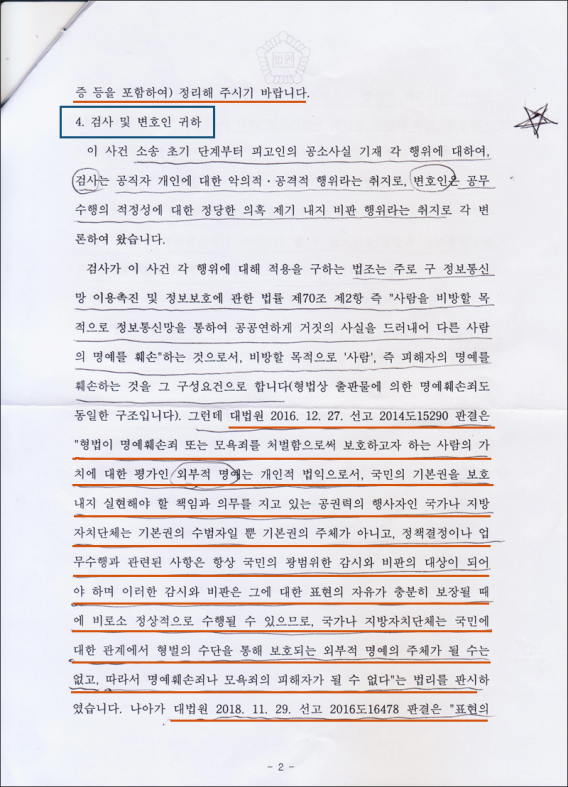 증 등을 포함하여) 정리해 주시기 바랍니다.
4. 검사 및 변호인 귀하
이 사건 소송 초기 단계부터 피고인의 공소사실 기재 각 행위에 대하여,
검사는 공직자 개인에 대한 악의적·공격적 행위라는 취지로, 변호인은 공무
수행의 적정성에 대한 정당한 의혹 제기 내지 비판 행위라는 취지로 각 변
론하여 왔습니다.
검사가 이 사건 각 행위에 대해 적용을 구하는 법조는 주로 구 정보통신
망 이용촉진 및 정보보호에 관한 법률 제70조 제2항 즉 "사람을 비방할 목
적으로 정보통신망을 통하여 공공연하게 거짓의 사실을 드러내어 다른 사람
의 명예를 훼손"하는 것으로서, 비방할 목적으로 '사람', 즉 피해자의 명예를
훼손하는 것을 그 구성요건으로 합니다(형법상 출판물에 의한 명예훼손죄도
동일한 구조입니다). 그런데 대법원 2016. 12. 27. 선고 2014도15290 판결은
"형법이 명예훼손죄 또는 모욕죄를 처벌함으로써 보호하고자 하는 사람의 가
치에 대한 평가인 외부적 명예는 개인적 법익으로서, 국민의 기본권을 보호
내지 실현해야 할 책임과 의무를 지고 있는 공권력의 행사자인 국가나 지방
자치단체는 기본권의 수범자일 뿐 기본권의 주체가 아니고, 정책결정이나 업
무수행과 관련된 사항은 항상 국민의 광범위한 감시와 비판의 대상이 되어
야 하며 이러한 감시와 비판은 그에 대한 표현의 자유가 충분히 보장될 때
에 비로소 정상적으로 수행될 수 있으므로, 국가나 지방자치단체는 국민에
대한 관계에서 형벌의 수단을 통해 보호되는 외부적 명예의 주체가 될 수는
없고, 따라서 명예훼손죄나 모욕죄의 피해자가 될 수 없다"는 법리를 판시하
였습니다. 나아가 대법원 2018. 11. 29. 선고 2016도16478 판결은 "표현의
- 2 -